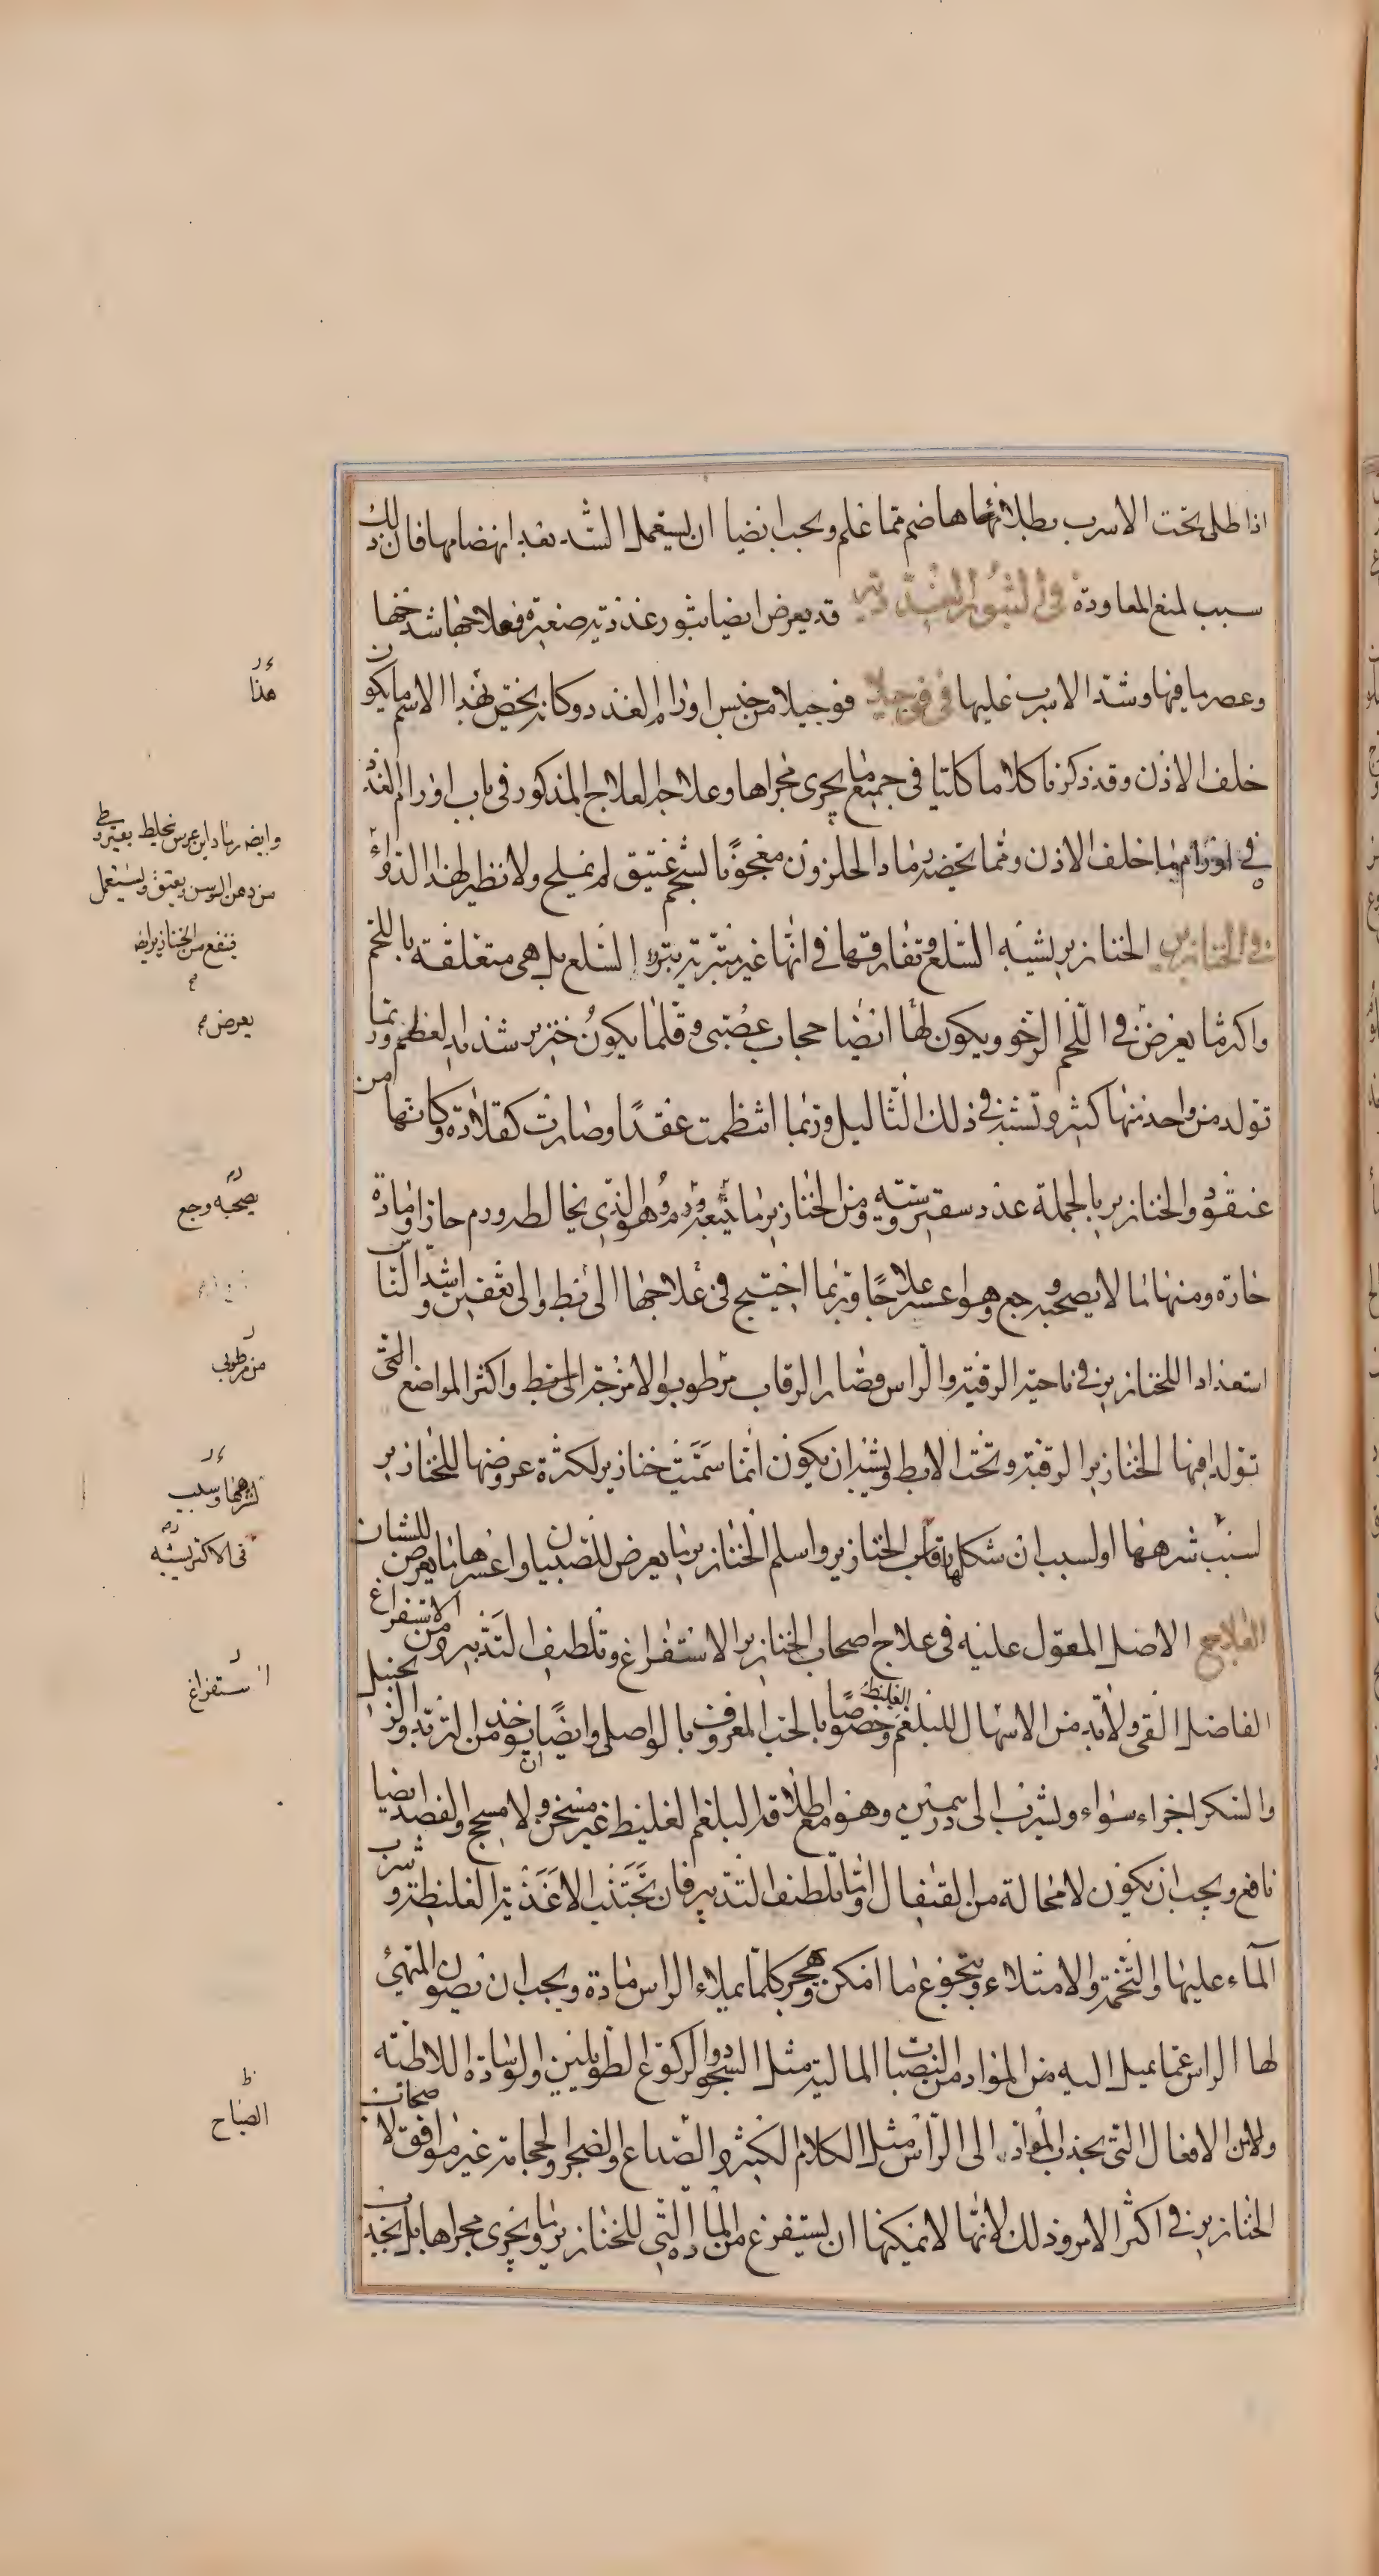 اذا طلى تحت الاسرب بطلاء هاضم مما علم ويجب ايضا ان يستعمل الشد بعد انهضامها فان ذلك
سبب لمنع المعاودة في البثور الغددية قد يعرض ايضا بثور غددية صغيرة فعلاجها شدخها
وعصر ما فيها وشد الاسرب عليها في فوجيلا فوجيلا من جنس اورام الغدد وكانه يختص بهذا الاسم ما يكون
خلف الاذن وقد ذكرنا كلاما كليا في جميع ما يجرى مجراها وعلاجه العلاج المذكور في باب اورام الغدد
في اورام ما خلف الاذن ومما يخصه رماد الحلزون معجونا بشحم عتيق لم يملح ولا نظير لهذا الدواء
في الخنازير الخنازير يشبه السلع وتفارقها في انها غير متبرية تبرو السلع بل هي متعلقة باللحم
واكثر ما يعرض في اللحم الرخو ويكون لها ايضا حجاب عصبي وقلما يكون خنزير شديد العظم وربما
تولد من واحد منها كثير وتشبه في ذلك الثاليل وربما انتظمت عقدا وصارت كقلادة وكانها من
عنقود والخنازير بالجملة غدد سقيروسية ومن الخنازير ما يتبعه ورم وهو الذي يخالطه ورم حار او مادة
حارة ومنها ما لا يصحبه وجع وهو اعسر علاجا وربما احتيج في علاجها الى بط والى تعفين واشد الناس
استعدادا للخنازير في ناحية الرقبة والراس قصار الرقاب مرطوبو الامزجة الى بط واكثر المواضع التي
تولد فيها الخنازير الرقبة وتحت الابط ويشبه ان يكون انما سميت خنازير لكثرة عروضها للخنازير
لسبب شرهها او لسبب ان شكل رقاب الخنازير واسلم الخنازير ما يعرض للصبيان واعسرها ما يعرض للشبان
العلاج الاصل المعول عليه في علاج اصحاب الخنازير الاستفراغ وتلطيف التدبير ومن الاستفراغ
الفاضل القى ولا بد من الاسهال للبلغم الغليظ وخصوصا بالحب المعروف بالواصلى وايضا ان يوخذ من التربد والزنجبيل
والسكر اجزاء سواء ويشرب الى درهمين وهو مع اطلاقه البلغم الغليظ غير مسخن ولا مسحج والفصد ايضا
نافع ويجب ان يكون لا محالة من القيفال واما تلطيف التدبير فان تجتنب الاغذية الغليظة وشرب
الماء عليها والتخمة والامتلاء ويتجوع ما امكن ويهجر كلما يملاء الراس مادة ويجب ان يصون المتهيئ
لها الراس عما يميل اليه من المواد من النصبات المالية مثل السجود والركوع الطويلين والوسادة اللاطئة
ولا من الافعال التي يجذب المواد الى الراس مثل الكلام الكثير والصداع والضجر والحجامة غير موافق لاصحاب
الخنازير في اكثر الامر وذلك لانها لا تمكنها ان يستفرغ من المادة التي للخنازير وما يجرى مجراها بل يجذب
هذا
وايضا رماد ابن عرس يخلط بقيروطي
من دهن السوسن ويعتق ويستعمل
فينفع من الخنازير ايضا
يعرض
يصحبه وجع
من مرطوبي
لشرهها وسبب
في الاكثر يشبه
استفراغ
الصياح